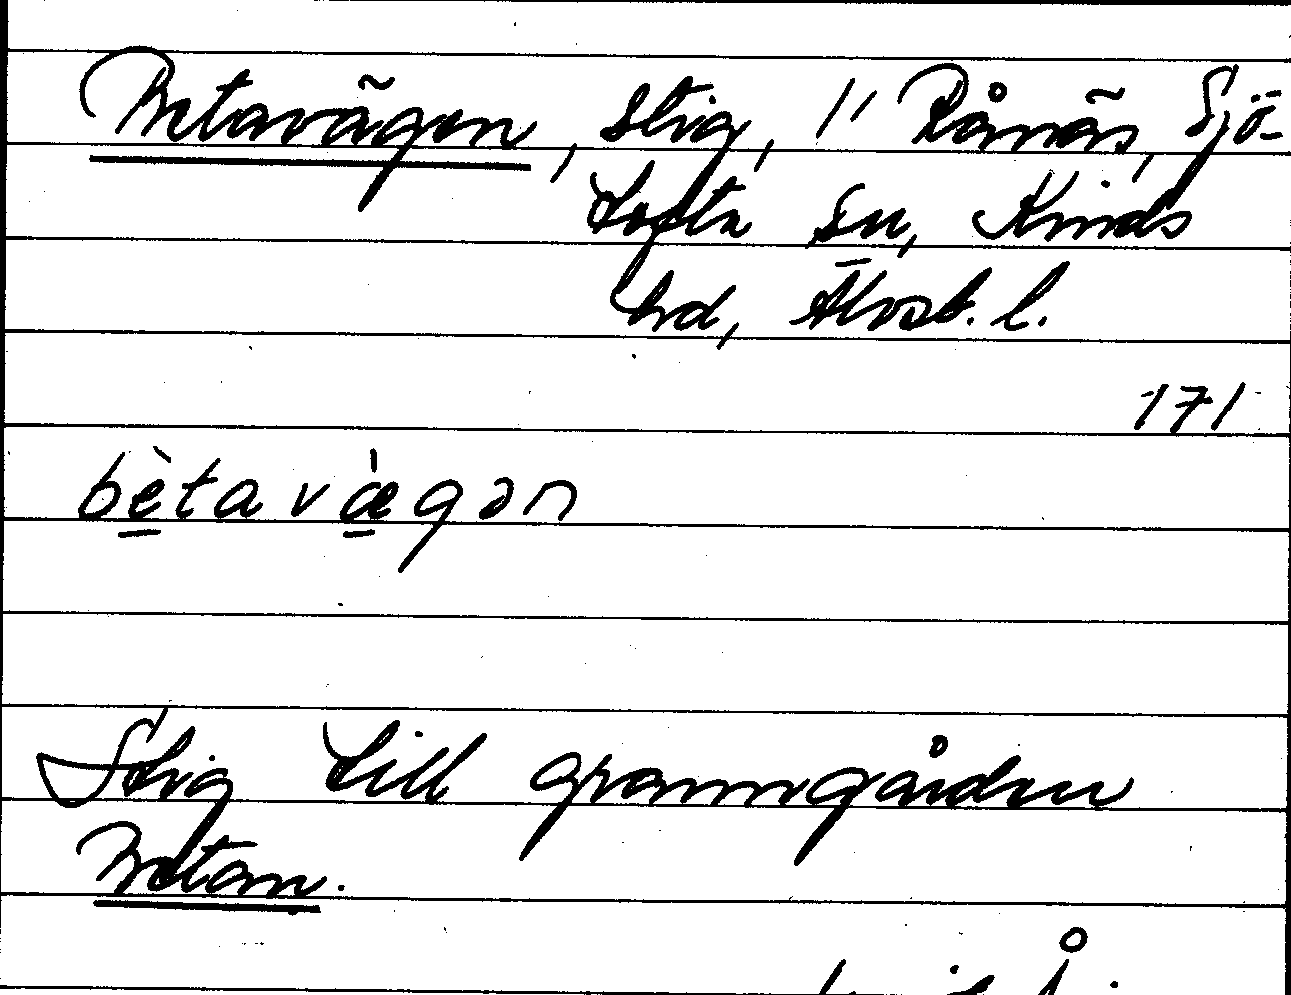 Betavägen, stig, 1/1 Rånäs, Sjö-
tofta sn, Kinds
hd, Älvsb. l.
171
bètavæ̀gən
Stig till granngården
Betan.